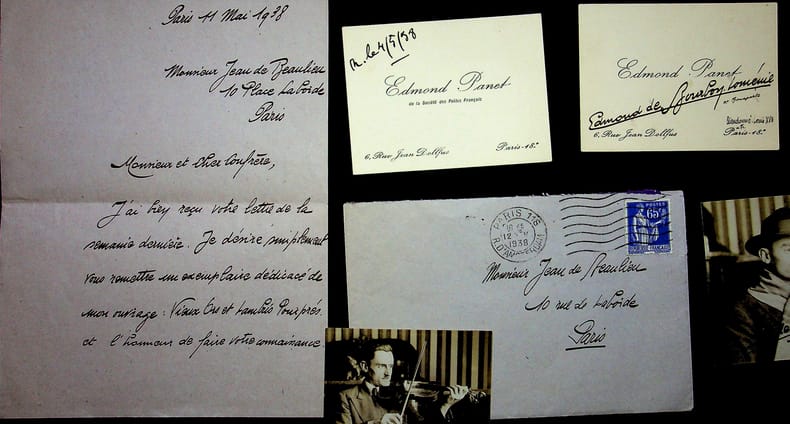 Paris 11 Mai 1938
Monsieur Jean de Beaulieu
10 Place Laborde
Paris
Monsieur et Cher Confrère,
J'ai bien reçu votre lettre de la
semaine dernière. Je désire simplement
vous remettre un exemplaire dédicacé de
mon ouvrage : Vieux Ors et Lambris Pourprés
et l'honneur de faire votre connaissance.
le 4/5/38
Edmond Panet
de la Société des Poètes Français
6, Rue Jean Dollfus
Paris-18e
Edmond Panet
Edmond de Bourbon Loménie
6, Rue Jean Dollfus
Paris-18e
PARIS 118
12
1938
R. D'AMSTERDAM
POSTES
65c
Monsieur Jean de Beaulieu
10 rue de Laborde
Paris